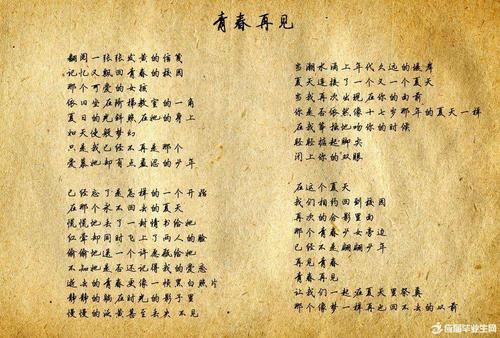 青春再见
翻阅一张张发黄的信笺
记忆又驶回青春的校园
那个可爱的女孩
依旧坐在阶梯教室的一角
夏日的光斜照在她的身上
如天使般梦幻
只是我已经不再是那个
爱慕她却有点羞涩的少年
已经忘了是怎样的一个开始
在那个永不回去的夏天
慌慌地丢了一封情书给她
红晕却同时飞上了两人的脸
偷偷地送一个许愿瓶给她
不知她是否还记得我的爱恋
逝去的青春更像一帧黑白照片
静静的躺在时光的影子里
慢慢的泛黄甚至丢失不见
当潮水涌上年代久远的堤岸
夏天连接了一个又一个夏天
当我再次出现在你的面前
你是否依然像十七岁那年的夏天一样
在我等待地吻你的时候
轻轻踮起脚尖
闭上你的双眼
在这个夏天
我们相约回到校园
再次的合影里面
那个青春少女旁边
已经不是翩翩少年
再见青春
青春再见
让我们一起在夏天里祭奠
那个像梦一样再也回不去的以前
应届毕业生网